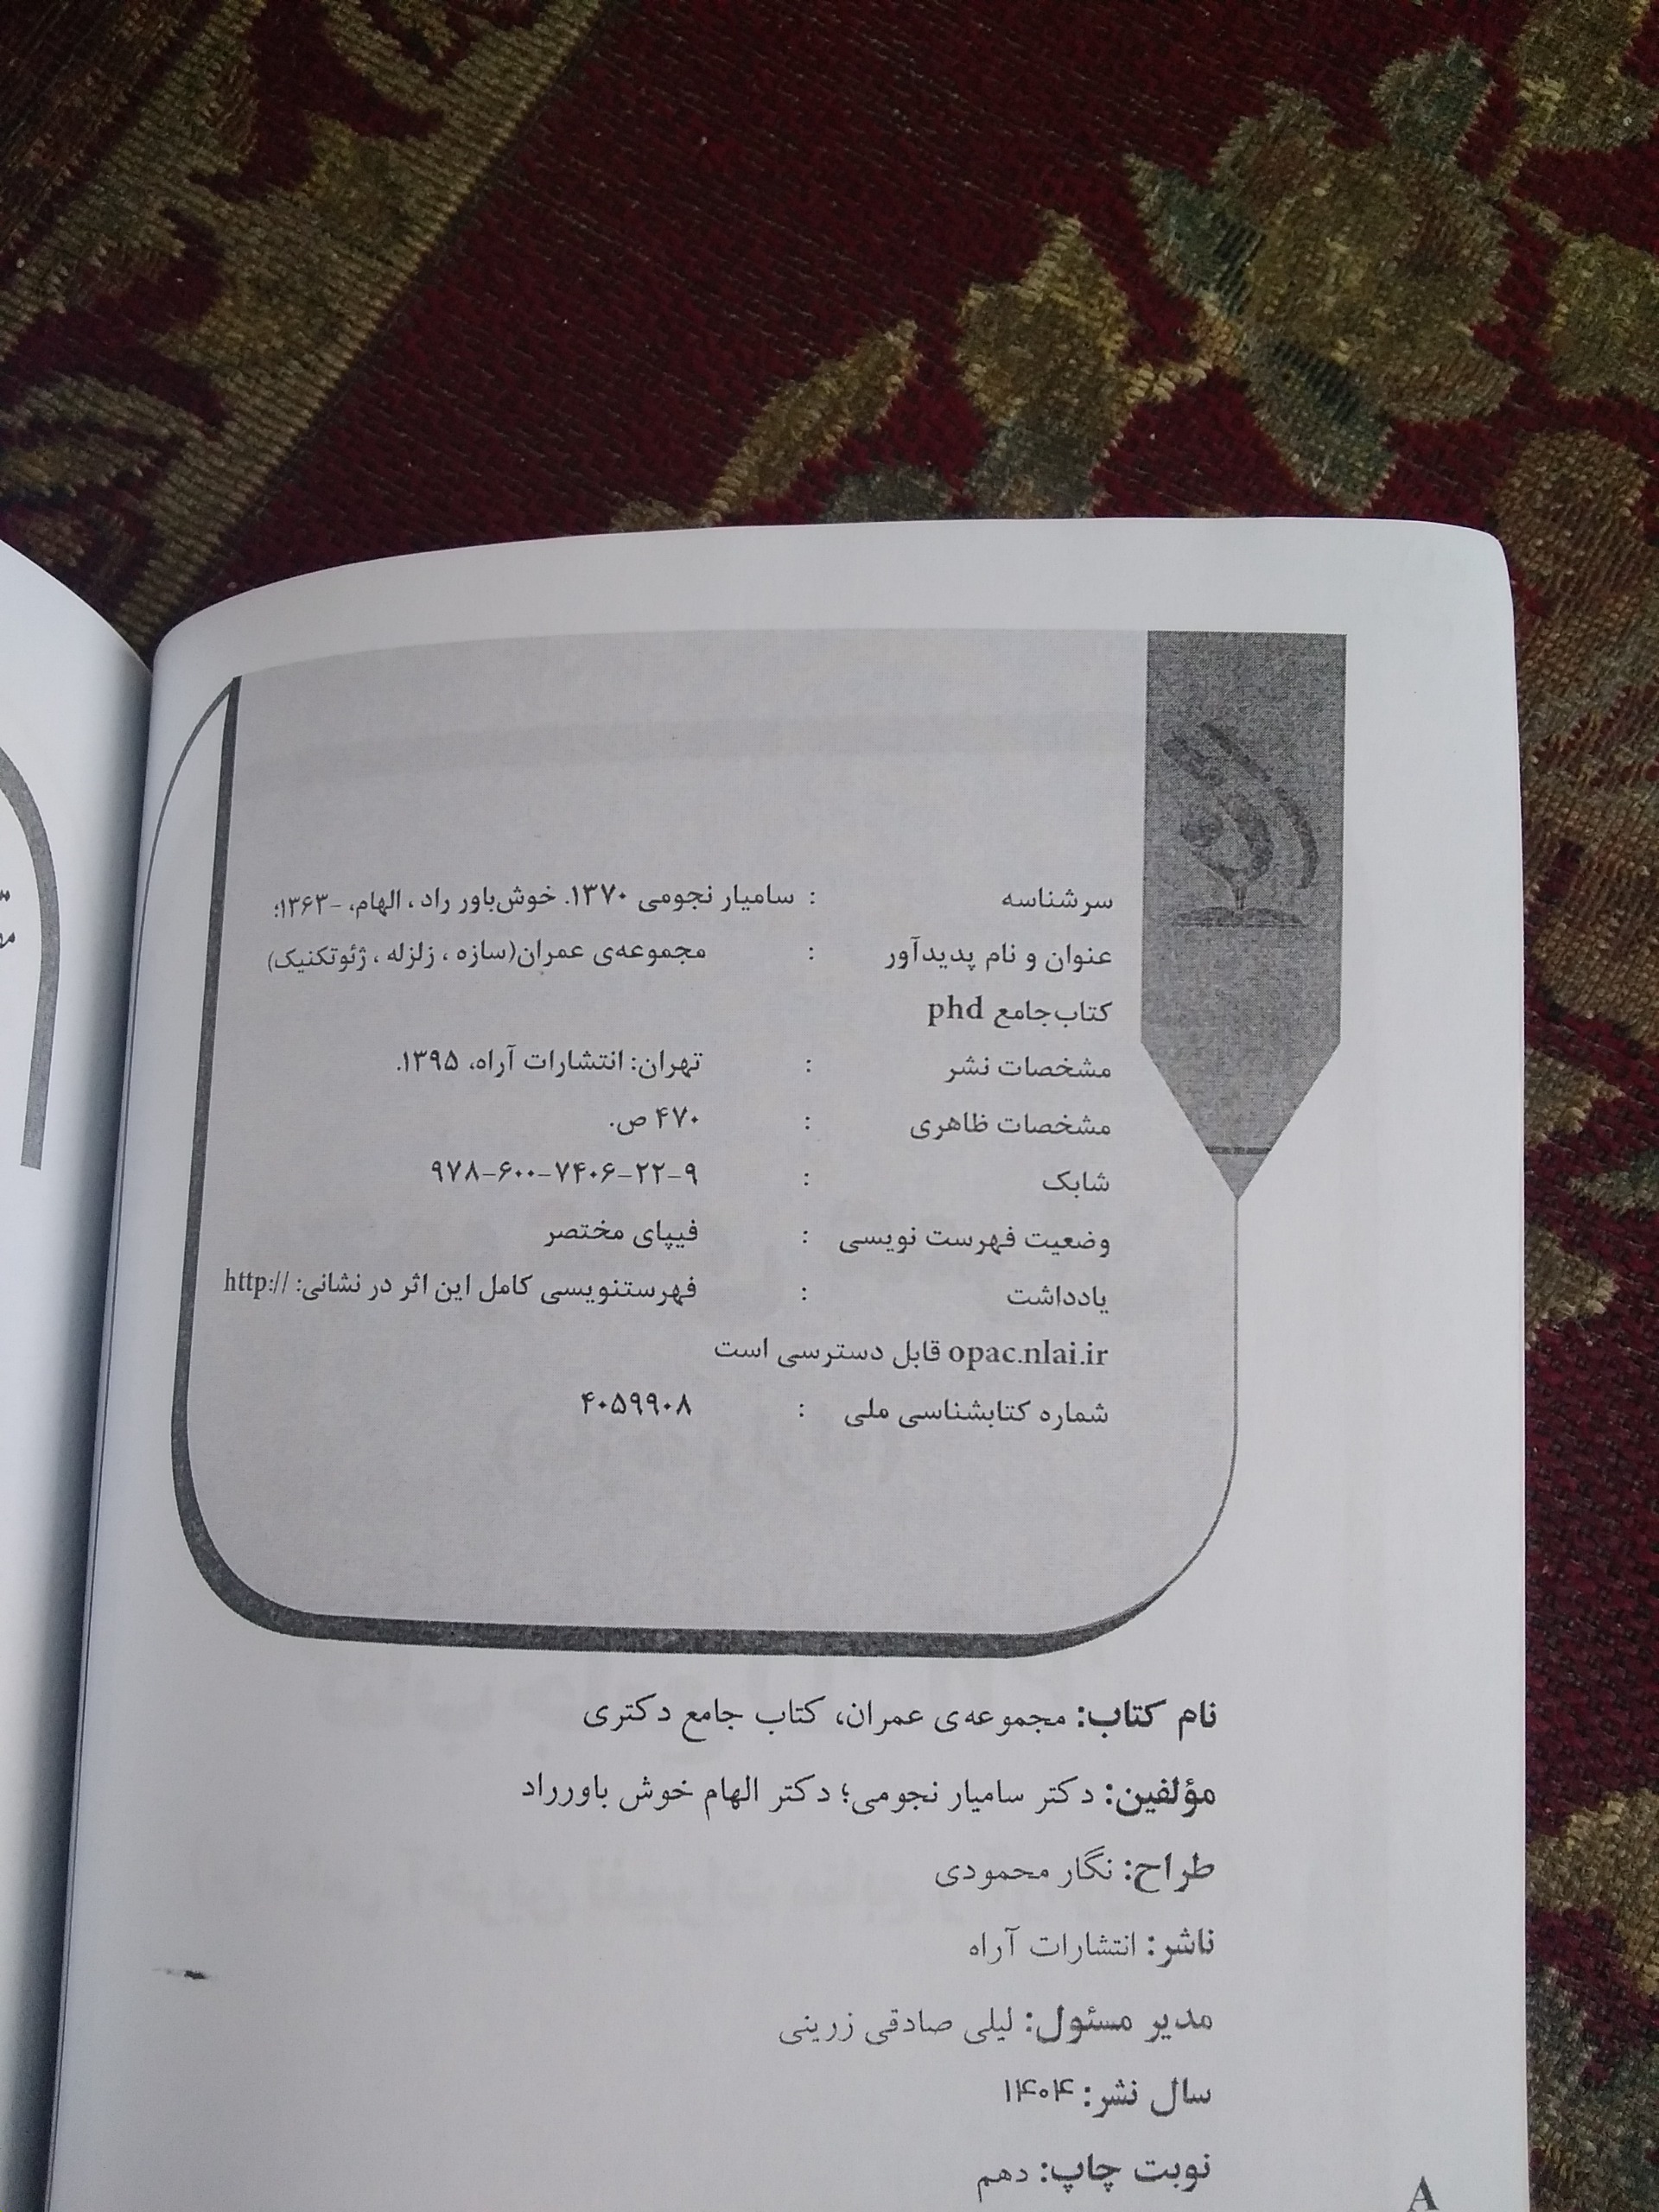 سرشناسه : سامیار نجومی ۱۳۷۰. خوش‌باور راد ، الهام، -۱۳۶۳؛
عنوان و نام پدیدآور : مجموعه‌ی عمران(سازه ، زلزله ، ژئوتکنیک)
کتاب‌جامع phd
مشخصات نشر : تهران: انتشارات آراه، ۱۳۹۵.
مشخصات ظاهری : ۴۷۰ ص.
شابک : ۹۷۸-۶۰۰-۷۴۰۶-۲۲-۹
وضعیت فهرست نویسی : فیپای مختصر
یادداشت : فهرستنویسی کامل این اثر در نشانی: http://
opac.nlai.ir قابل دسترسی است
شماره کتابشناسی ملی : ۴۰۵۹۹۰۸
نام کتاب: مجموعه‌ی عمران، کتاب جامع دکتری
مؤلفین: دکتر سامیار نجومی؛ دکتر الهام خوش باورراد
طراح: نگار محمودی
ناشر: انتشارات آراه
مدیر مسئول: لیلی صادقی زرینی
سال نشر: ۱۴۰۴
نوبت چاپ: دهم
A